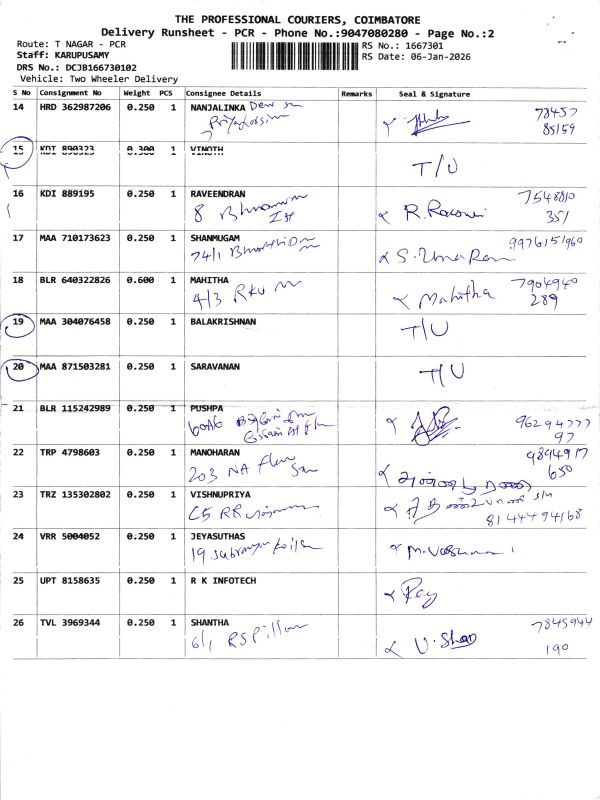 THE PROFESSIONAL COURIERS, COIMBATORE
Delivery Runsheet - PCR - Phone No.:9047080280 - Page No.:2
Route: T NAGAR - PCR
Staff: KARUPUSAMY
DRS No.: DCJB166730102
Vehicle: Two Wheeler Delivery
RS No.: 1667301
RS Date: 06-Jan-2026
S No Consignment No Weight PCS Consignee Details Remarks Seal & Signature
14 HRD 362987206 0.250 1 NANJALINKA 78457
85159
15 KDI 890323 0.300 1 VINOTH T/U
16 KDI 889195 0.250 1 RAVEENDRAN 7548810
8 R. 351
17 MAA 710173623 0.250 1 SHANMUGAM 9976151960
74/1 S. Uma Rani
18 BLR 640322826 0.600 1 MAHITHA 7904940
4/3 RKV Mahitha 289
19 MAA 304076458 0.250 1 BALAKRISHNAN T/U
20 MAA 871503281 0.250 1 SARAVANAN T/U
21 BLR 115242989 0.250 1 PUSHPA 96294777
97
22 TRP 4798603 0.250 1 MANOHARAN 9894917
203 NA 650
23 TRZ 135302802 0.250 1 VISHNUPRIYA
C5 RR 8144494168
24 VRR 5004052 0.250 1 JEYASUTHAS
19 M.
25 UPT 8158635 0.250 1 R K INFOTECH Ray
26 TVL 3969344 0.250 1 SHANTHA 7845944
6/1 RS Pillam U. Shan 190